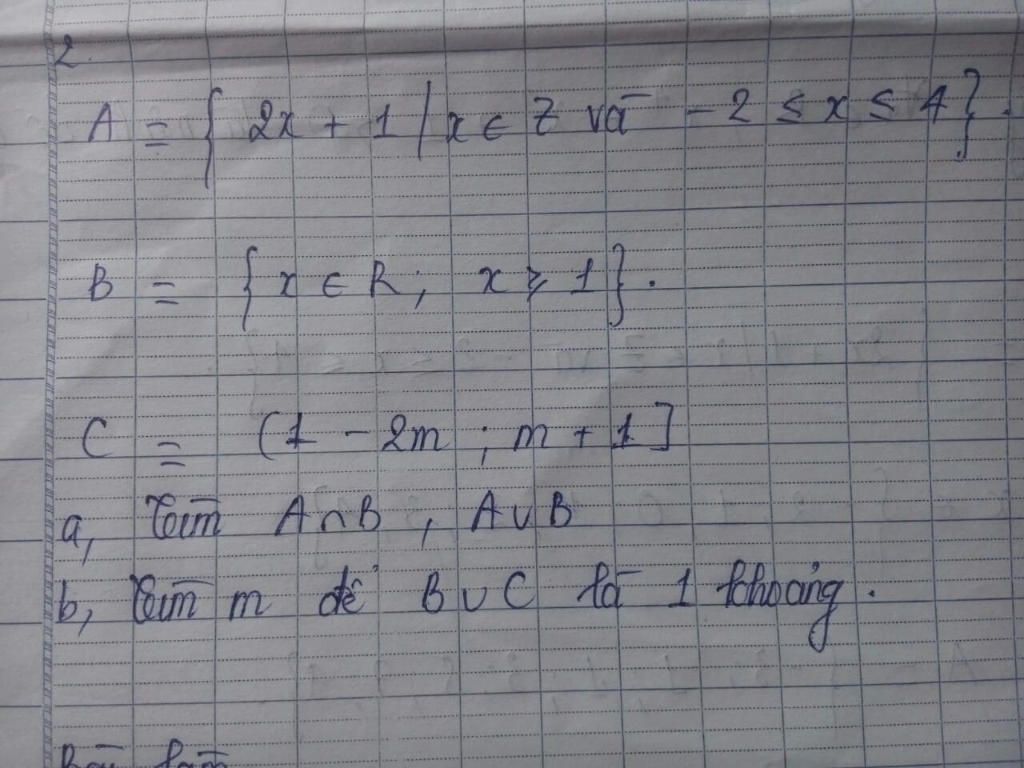 2.
A = { 2x + 1 | x ∈ Z và - 2 ≤ x ≤ 4 }.
B = { x ∈ R ; x ≥ 1 }.
C = (1 - 2m ; m + 1]
a, Tìm A∩B , A∪B
b, Tìm m để B∪C là 1 khoảng.
Bài làm